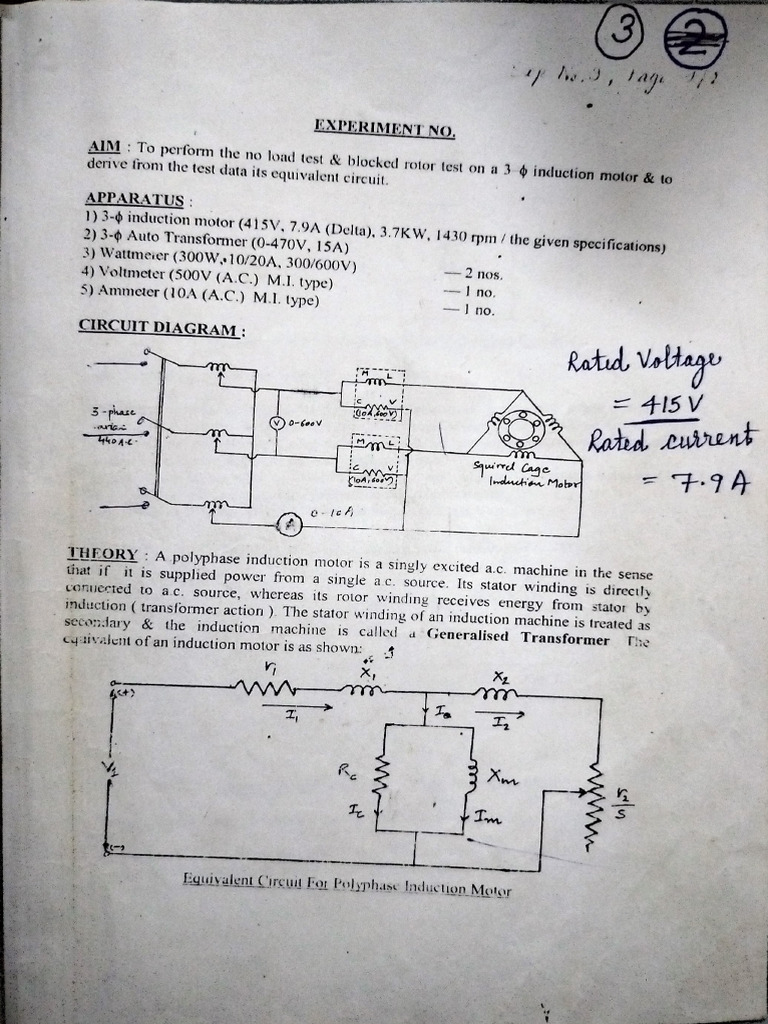 3 2
EXPERIMENT NO.
AIM : To perform the no load test & blocked rotor test on a 3-ϕ induction motor & to
derive from the test data its equivalent circuit.
APPARATUS :
1) 3-ϕ induction motor (415V, 7.9A (Delta), 3.7KW, 1430 rpm / the given specifications)
2) 3-ϕ Auto Transformer (0-470V, 15A)
3) Wattmeter (300W, 10/20A, 300/600V) — 2 nos.
4) Voltmeter (500V (A.C.) M.I. type) — 1 no.
5) Ammeter (10A (A.C.) M.I. type) — 1 no.
CIRCUIT DIAGRAM :
Rated Voltage
= 415 V
Rated current
= 7.9 A
M L
C V
(10A, 600V)
3-phase
440 A.C.
V 0-600V
M
C V
(10A, 600V)
Squirrel Cage
Induction Motor
A
THEORY : A polyphase induction motor is a singly excited a.c. machine in the sense
that if it is supplied power from a single a.c. source. Its stator winding is directly
connected to a.c. source, whereas its rotor winding receives energy from stator by
induction ( transformer action ). The stator winding of an induction machine is treated as
secondary & the induction machine is called a Generalised Transformer The
equivalent of an induction motor is as shown:
r1 X1 X2
(+)
I1 Io I2
V1
Rc Xm r2/s
Ic Im
(-)
Equivalent Circuit For Polyphase Induction Motor